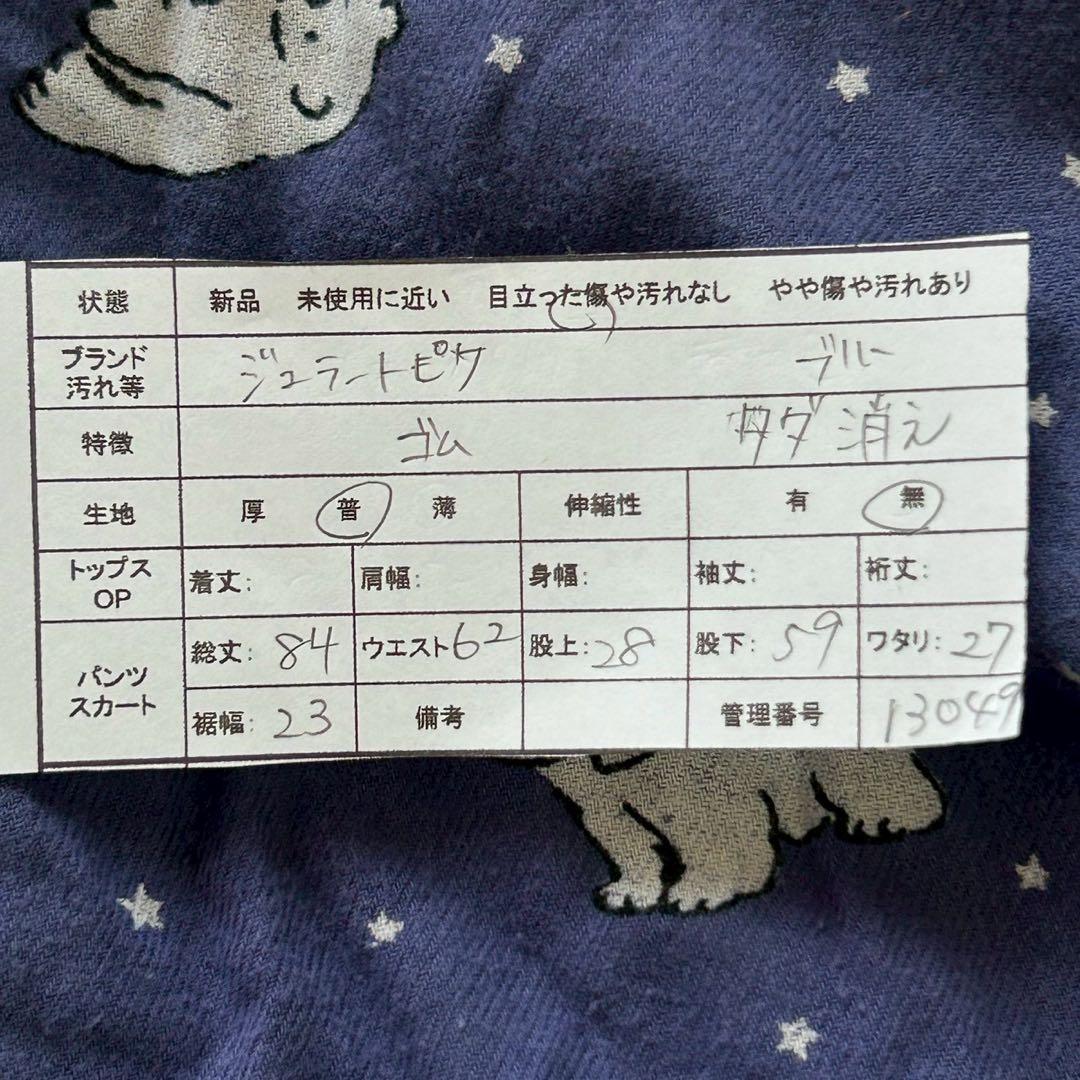 状態 新品 未使用に近い 目立った傷や汚れなし やや傷や汚れあり
ブランド 汚れ等 ジェラートピケ ブルー
特徴 ゴム タダ 消え
生地 厚 普 薄 伸縮性 有 無
トップス OP 着丈: 肩幅: 身幅: 袖丈: 裄丈:
パンツ スカート 総丈: 84 ウエスト62 股上: 28 股下: 59 ワタリ: 27
裾幅: 23 備考 管理番号 13049